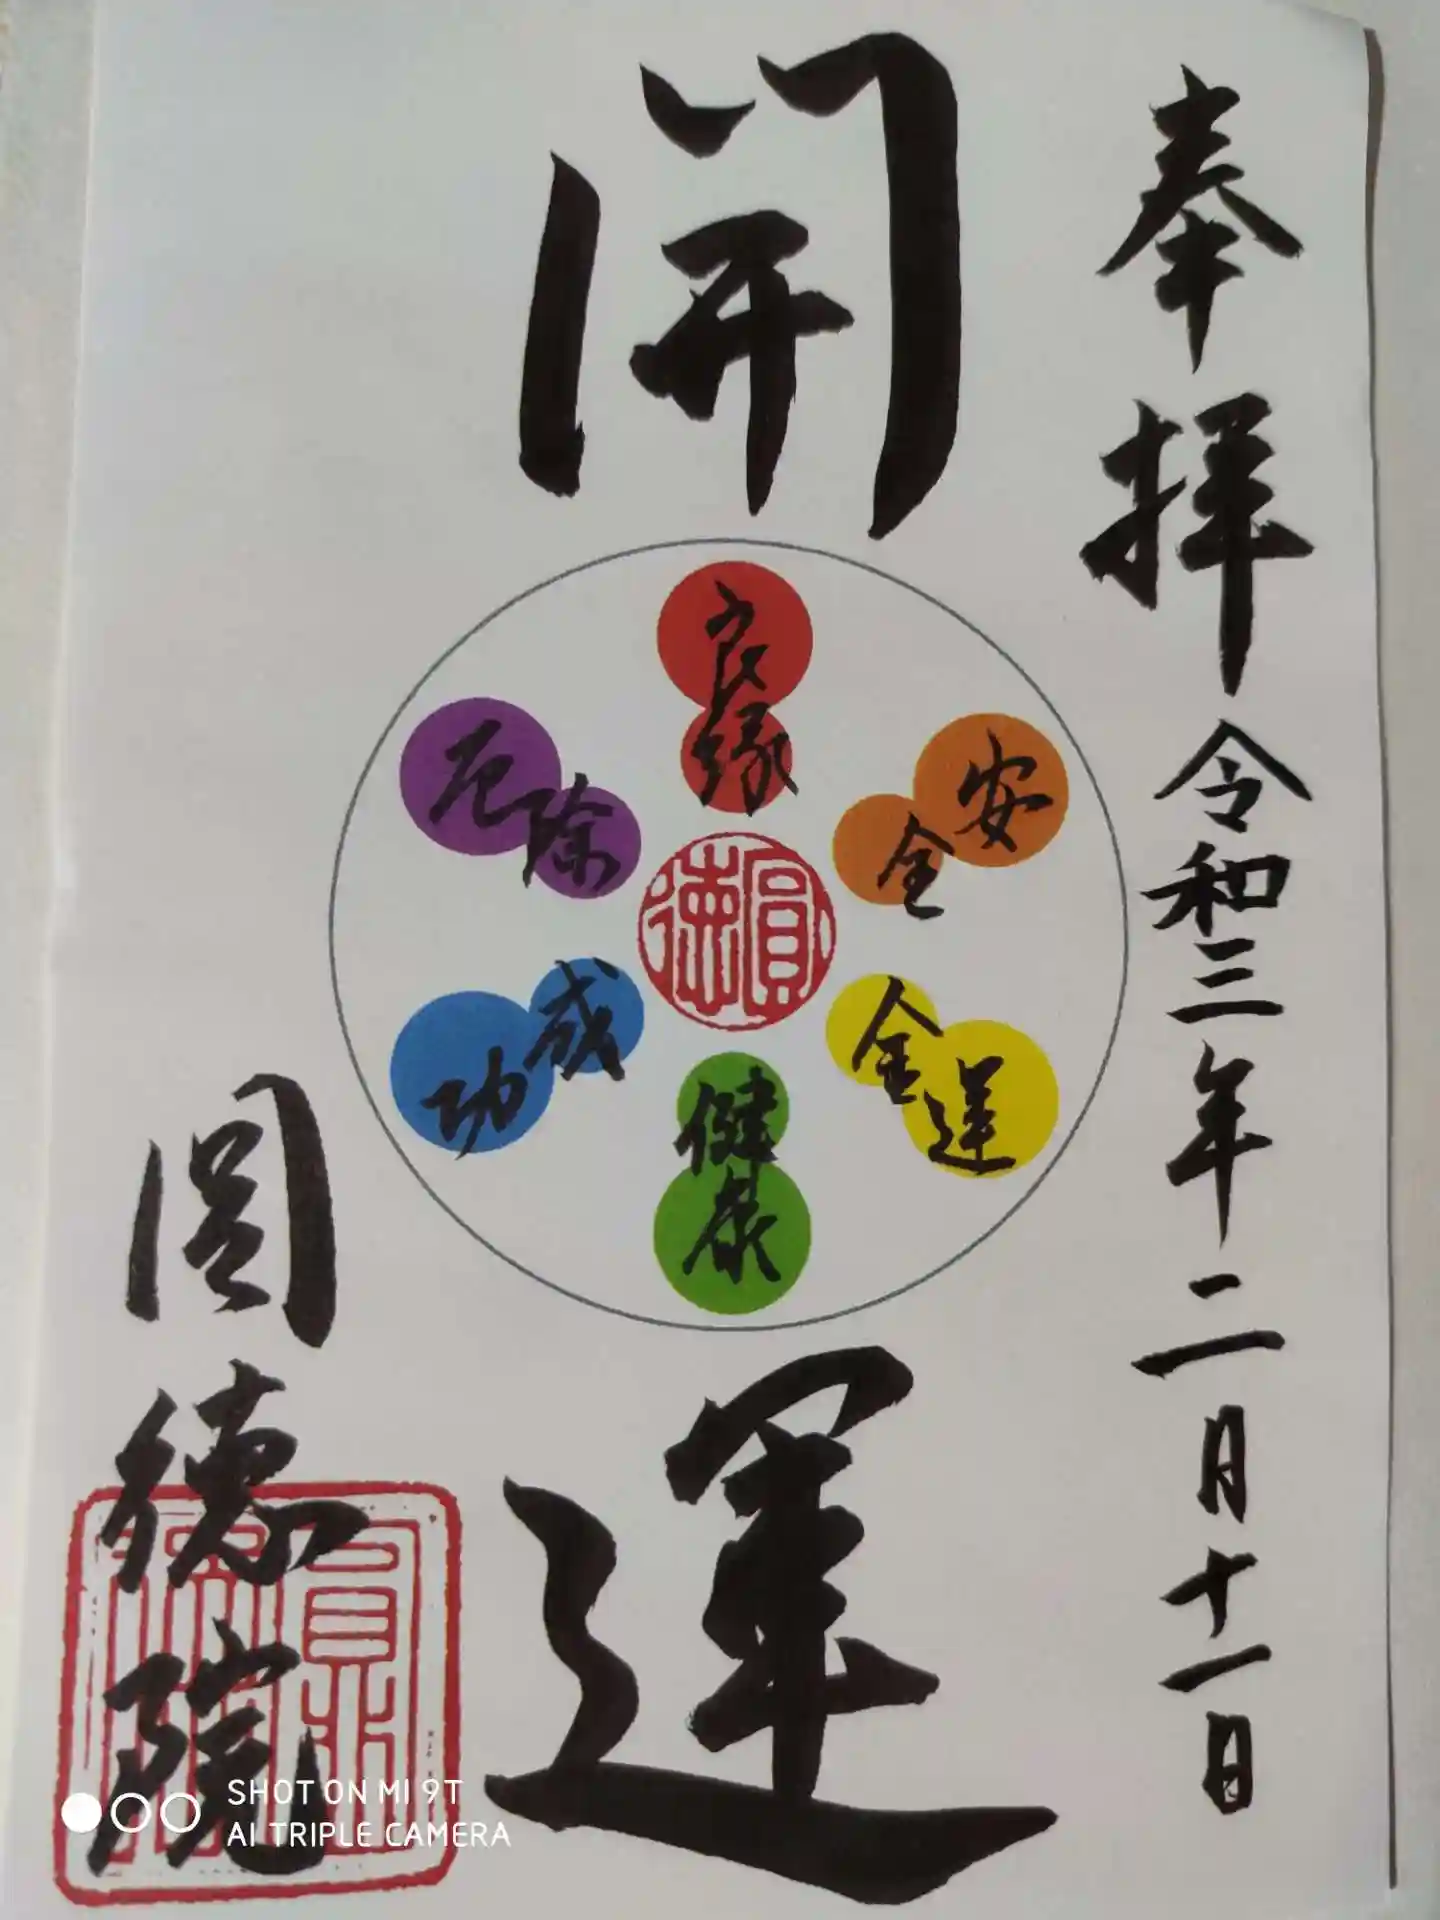 奉拝 令和三年二月十一日
開運
良縁
安全
金運
健康
成功
厄除
圓徳
圓徳院
圓徳院
SHOT ON MI 9T
AI TRIPLE CAMERA